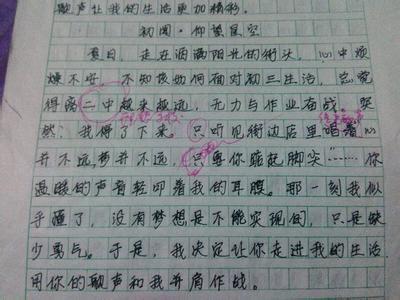 歌声让我的生活更加精彩。
初闻·仰望星空
夏日，走在洒满阳光的街头，心中烦
燥不安，不知该如何面对初三生活，总觉
得离二中越来越远，无力与作业奋战。突
然，我停了下来。只听见街边店里唱着“心
并不远，梦并不远，只要你踮起脚尖……”你
温暖的声音轻叩着我的耳膜。那一刻我似
乎醒了，没有梦想是不能实现的，只是缺
少勇气。于是，我决定让你走进我的生活，
用你的歌声和我并肩作战。